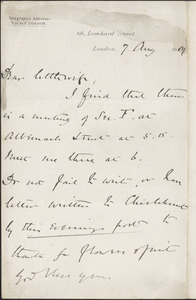 Lombard Street,
London, 7 Aug 1889
Dear little wife,
I find that there
is a meeting of Soc. F. at
Albemarle Street at 5.15.
Meet me there at 6.
Do not fail to write, or have
letter written to Chislehurst
by this evenings post to
thanks for flowers & fruit
God bless you